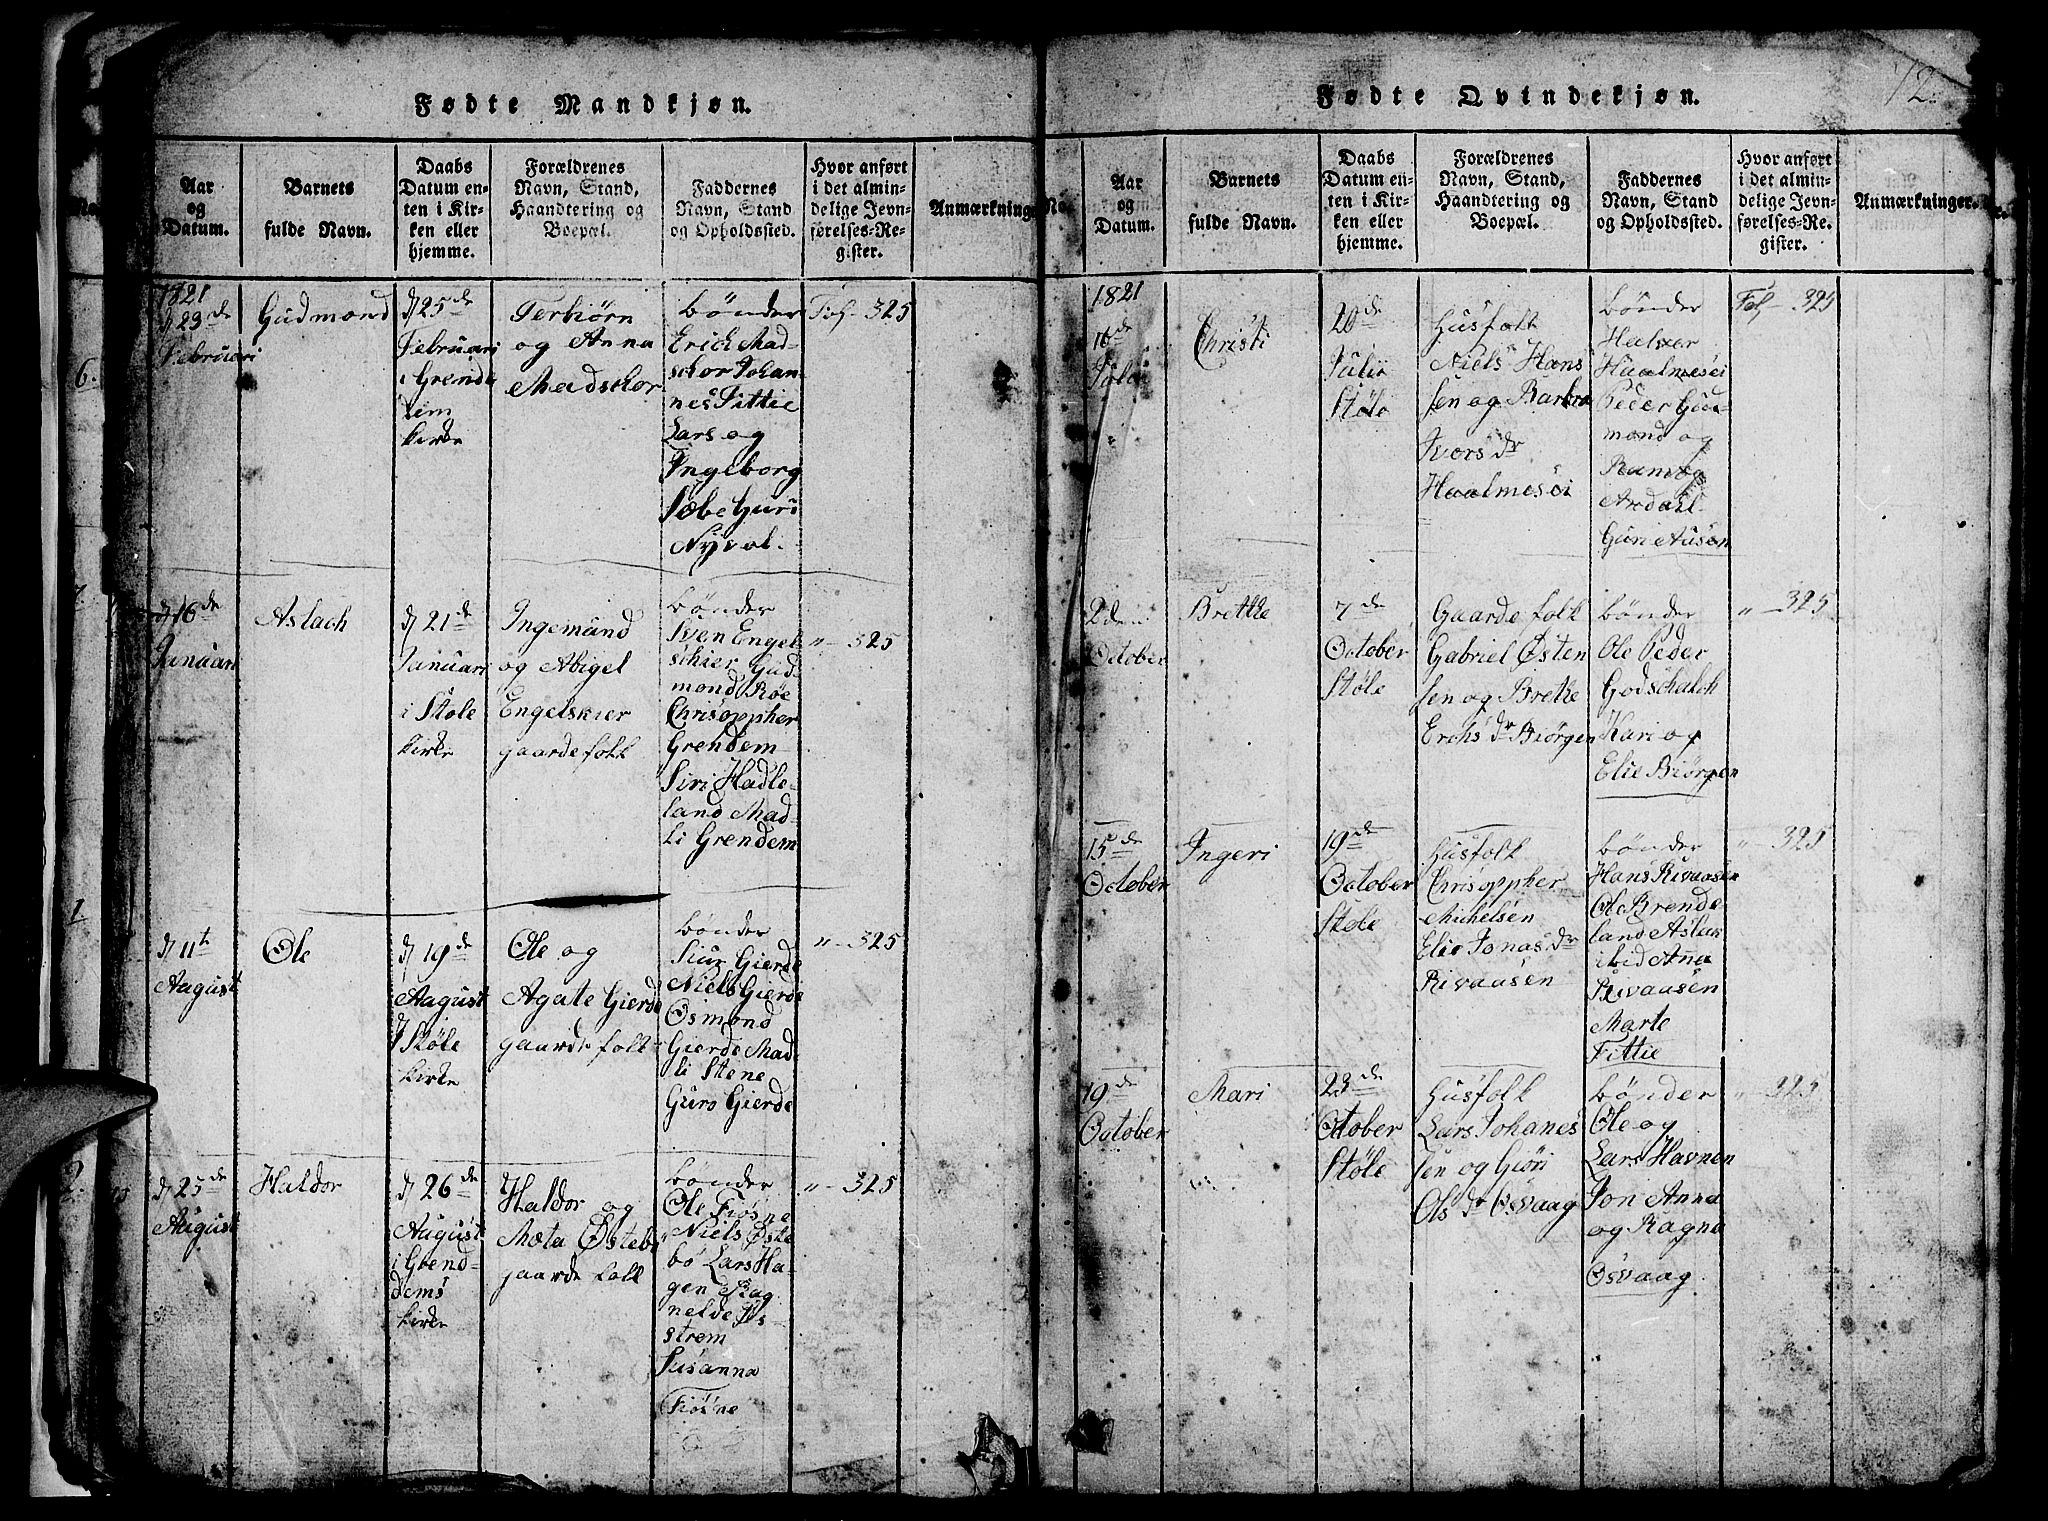 12.
Fødte Mandkjøn.
Aar
og
Datum.
Barnets
fulde Navn.
Daabs
Datum en-
ten i Kir-
ken eller
hjemme.
Forældrenes
Navn, Stand,
Haandtering og
Boepæl.
Faddernes
Navn, Stand
og Opholdssted.
Hvor anført
i det almin-
delige Jevn-
førelses-Re-
gister.
Anmærkninge
6.
1821
d 23de
Februari
Gudmond
d 25de
Februari
i Grenda
lem
kirke
Terbiørn
og Anna
Madschor
bønder
Erich Mad-
schor Johan-
nes Fittie
Lars og
Ingeborg
Sæbe Guri
Nyvol.
Fol - 325
7
d 16de
Januari
Aslach
d 21de
Januari
i Støle
kirke
Ingemund
og Abigel
Engelskier
gaardefolk
bønder
Sven Engel
schier Gud
mond Røe
Chrisoppher
Grendem
Siri Hadle-
land Mad-
li Grendem
" - 325
1
d 11t
August
Ole
d 19de
August
Støle
kirke
Ole og
Agate Gierde
gaardefolk
bønder
Siur Gierde
Niels Gierde
Osmond
Gierde Mad-
li Stene
Guro Gierde
" - 325
2.
d 25de
August
Haldor
d 26de
August
i Grend-
dems
kirke
Haldor og
Mæta Østebø
gaardefolk
bønder
Ole Fiøsne
Niels Øste
bø Lars Ha-
gen Rag
nelde
strem
Susanna
Fiøsne
" - 325
Fødte Qvindekjøn.
No.
Aar
og
Datum.
Barnets
fulde Navn.
Daabs
Datum en-
ten i Kir-
ken eller
hjemme.
Forældrenes
Navn, Stand,
Haandtering og
Boepæl.
Faddernes
Navn, Stand
og Opholdssted.
Hvor anført
i det almin-
delige Jevn-
førelses-Re-
gister.
Anmærkninger.
1821
16de
Julii
Christi
20de
Julii
Støle
Husfolk
Niels Hans
sen og Barbra
Ivors dr
Haalmesøi
bønder
Halver
Haalmesøi
Peder Gud-
mond og
Ramveg
Ardahl
Guri Ausen
Fol - 325
2den
October
Brethe
7de
October
Støle
Gaarde folk
Gabriel Østen
sen og Brethe
Erichs dr Biørgen
bønder
Ole Peder
Godschalch
Kari og
Elie Biørgen
" - 325
15de
October
Ingeri
19de
October
Støle
Husfolk
Chrisoppher
Michelsen
Elie Jonas dr
Rivaasen
bønder
Hans Rivaasen
Ole Brende
land Aslak
ibid Anna
Rivaasen
Marte
Fittie
" - 325
19de
October
Mari
23de
October
Støle
Husfolk
Lars Johanes
sen og Giøri
Ols dr Osvaag
bønder
Ole og
Lars Havnen
Jon Anna
og Ragna
Osvaag
" - 325